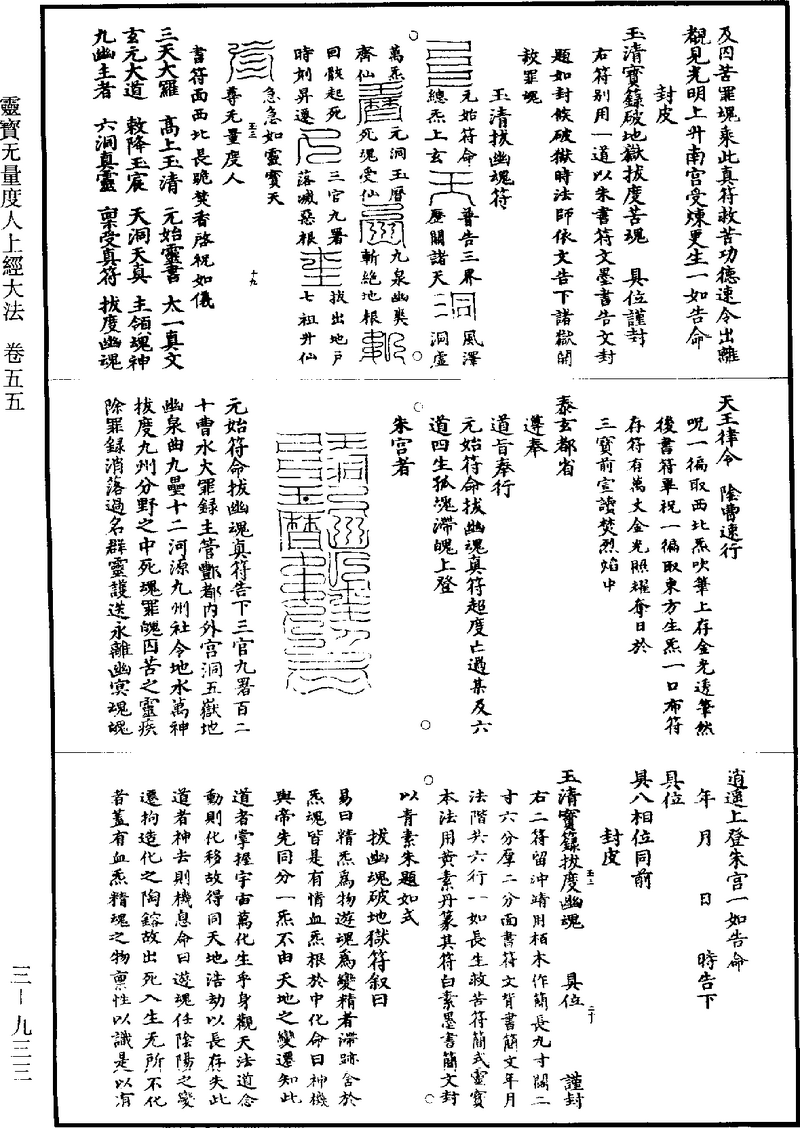 及囚苦罪魂乘此真符救苦功德速令出離
覩見光明上升南宮受煉更生一如告命
封皮
玉清寶籙破地獄拔度苦魂　具位謹封
右符別用一道以朱書符文墨書告文封
題如封候破獄時法師依文告下諸獄開
赦罪魂
玉清拔幽魂符
元始符命　普告三界　風澤
總炁上玄　歷關諸天　洞虛
萬炁　元洞玉曆　九泉幽爽
齊仙　死魂受仙　斬絕地根
回骸起死　三官九署　拔出地戶
時刻昇遷　落滅惡根　七祖升仙
急急如靈寶天
尊无量度人
玉三　十九
書符面西北長跪焚香啓祝如儀
三天大羅　高上玉清　元始靈書　太一真文
玄元大道　敕降玉宸　天洞天真　主領魂神
九幽主者　六洞真靈　稟受真符　拔度幽魂
天王律令　陰曹速行
呪一徧取西北炁吹筆上存金光透筆然
後書符畢祝一徧取東方生炁一口布符
存符有萬丈金光照耀奪日於
三寶前宣讀焚烈焰中
泰玄都省
遵奉
道旨奉行
元始符命拔幽魂真符超度亡過某及六
道四生孤魂滯魄上登
朱宮者
元始符命拔幽魂真符告下三官九署百二
十曹水火罪録主管酆都內外宮洞五嶽地
幽泉曲九壘十二河源九州社令地水萬神
拔度九州分野之中死魂罪魄囚苦之靈疾
除罪録消落過名群靈護送永離幽冥魂魂
逍遙上登朱宮一如告命
年　月　日　時告下
具位
具八相位同前
封皮
玉清寶籙拔度幽魂　具位　謹封
玉三　二十
右二符留沖靖用栢木作簡長九寸闊二
寸六分厚二分面書符文背書簡文年月
法階共六行一如長生救苦符簡式靈寶
本法用黄素丹篆其符白素墨書簡文封
以青素朱題如式
拔幽魂破地獄符叙曰
易曰精炁爲物遊魂爲變精者滯跡舍於
炁魂皆是有情血炁根於中化命曰神機
與帝先同分一炁不由天地之變遷知此
道者掌握宇宙萬化生乎身觀天法道念
動則化移故得同天地浩劫以長存失此
道者神去則機息命曰遊魂任陰陽之變
遷拘造化之陶鎔故出死入生无所不化
者蓋有血炁精魂之物稟性以識是以有
靈寶无量度人上經大法　卷五五
三－九三三